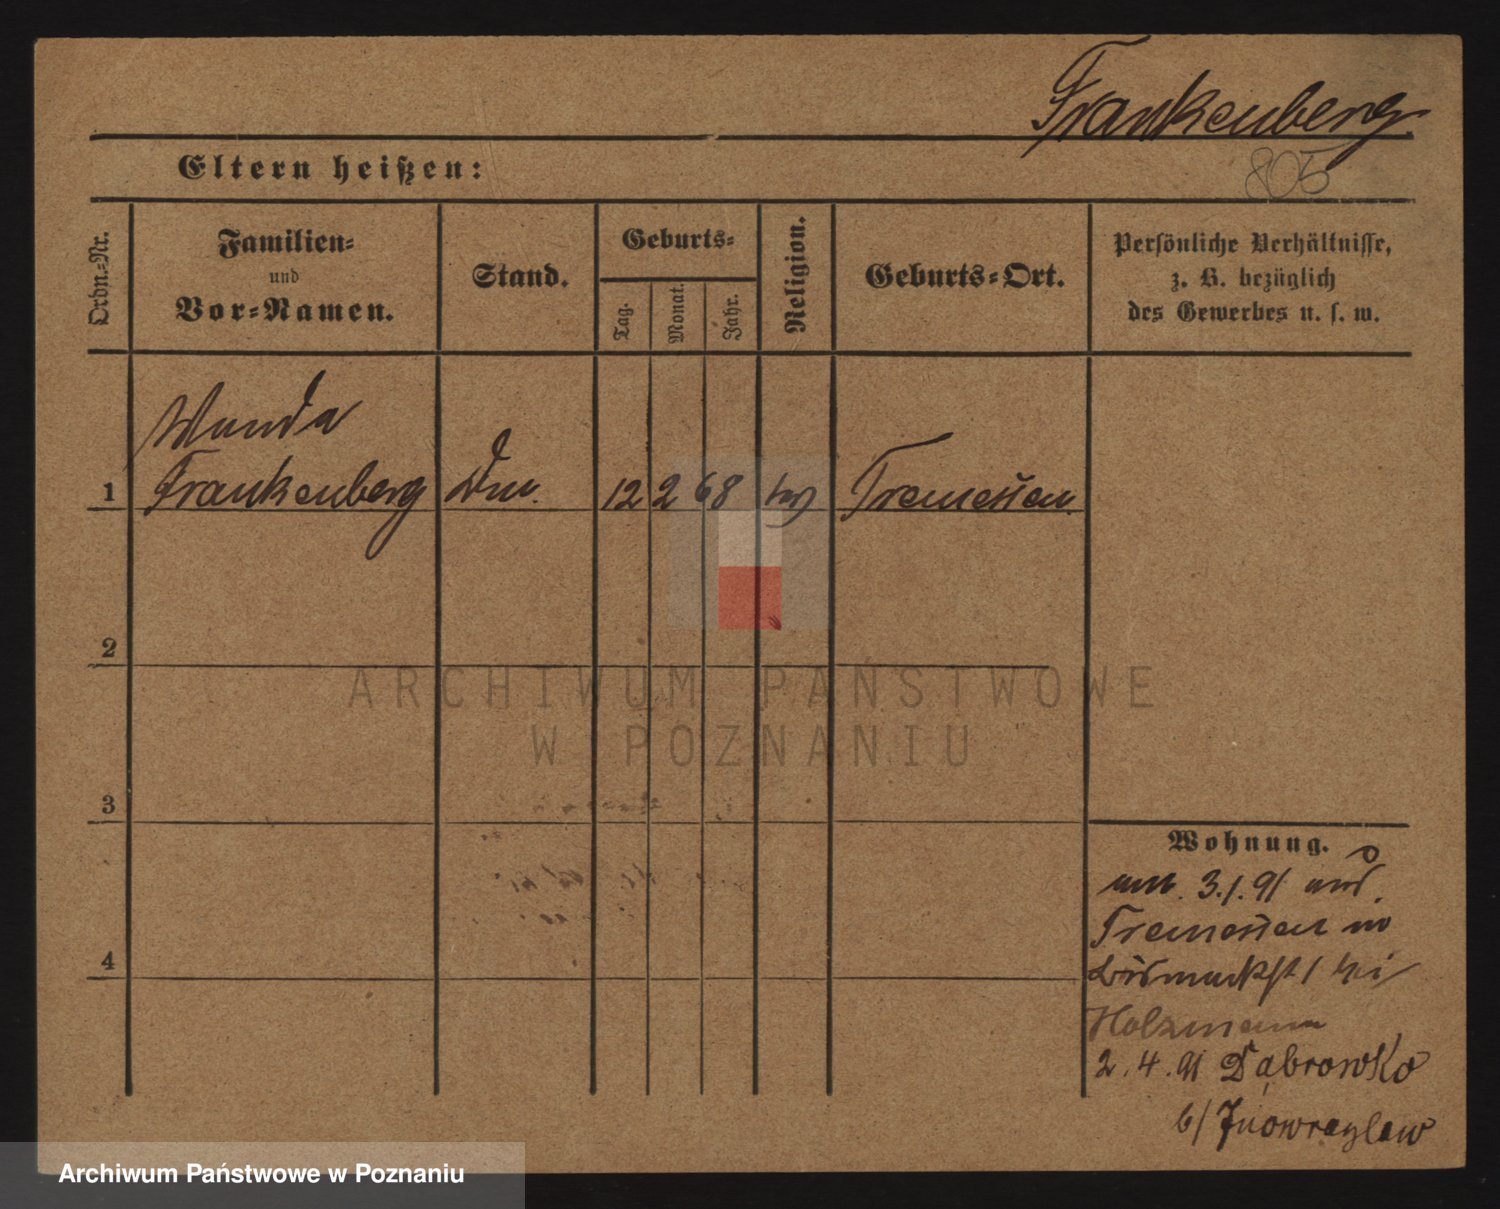 Frankenberg
805
Eltern heißen:
Ordn.-Nr.
Familien-
und
Vor-Namen.
Stand.
Geburts-
Tag.
Monat.
Jahr.
Religion.
Geburts-Ort.
Persönliche Verhältnisse,
z. B. bezüglich
des Gewerbes u. s. w.
Wanda
1 Frankenberg 12 2 68 Tremessen.
2
3
4
ARCHIWUM PAŃSTWOWE
W POZNANIU
Wohnung.
3.1.91 aus
Tremessen
Bismarckst 1 bei
Holzmann
2.4.91 Dąbrowko
b/ Inowrazlaw
Archiwum Państwowe w Poznaniu